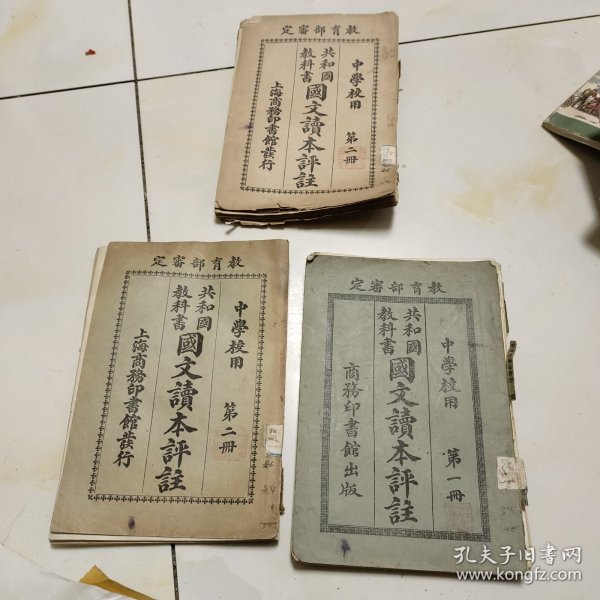 教育部審定
中學校用
第二冊
共和國
教科書
國文讀本評註
上海商務印書館發行
教育部審定
中學校用
第二冊
共和國
教科書
國文讀本評註
上海商務印書館發行
教育部審定
中學校用
第一冊
共和國
教科書
國文讀本評註
商務印書館出版
孔夫子旧书网
www.kongfz.com